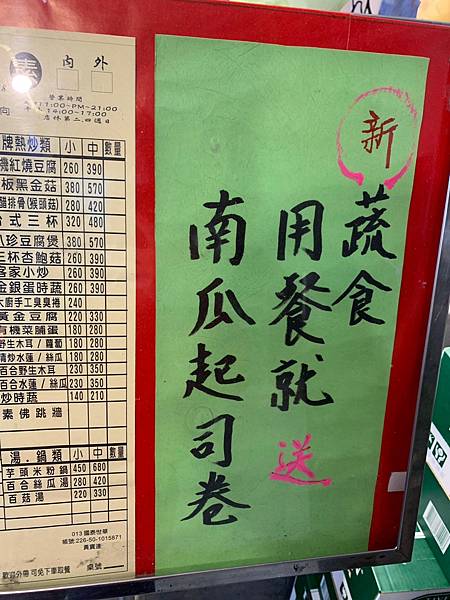 素 內 外
營業時間
11:00~PM~21:00
14:00~17:00
店休第二.四週日
牌熱炒類 小 中 數量
機紅燒豆腐 260 390
板黑金菇 380 570
醋排骨(猴頭菇) 280 420
台式三杯 320 480
八珍豆腐煲 380 570
三杯杏鮑菇 260 390
客家小炒 260 390
金銀蛋時蔬 260 390
大廚手工臭臭捲 240
黃金豆腐 220 330
有機菜脯蛋 180 280
野生木耳/蘿蔔 180 280
清炒水蓮/絲瓜 180 280
百合野生木耳 230 350
百合水蓮/絲瓜 230 350
炒時蔬 140 210
素佛跳牆
湯.鍋類 小 中 數量
芋頭米粉鍋 450 680
百合絲瓜湯 280 420
百菇湯 220 330
013 國泰世華
帳號:226-50-1015871
黃寶蓮
歡迎外帶 可免下車取餐 桌號
新
蔬食
用餐就送
南瓜起司卷